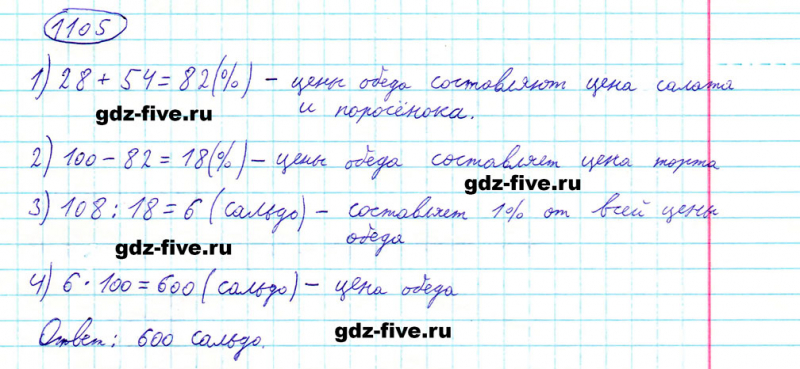 1105
1) 28 + 54 = 82 (%) – цены обеда составляют цена салата
и поросёнока.
gdz-five.ru
2) 100 – 82 = 18 (%) – цены обеда составляет цена торта
gdz-five.ru
3) 108 : 18 = 6 (сальдо) – составляет 1% от всей цены
обеда
gdz-five.ru
4) 6 · 100 = 600 (сальдо) – цена обеда
Ответ: 600 сальдо.
gdz-five.ru